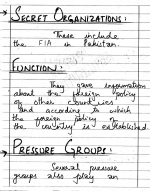 → SECRET ORGANIZATIONS:
These include
the FIA in Pakistan.
FUNCTION:
They gave information
about the foreign policy
of other countries
and according to which
the foreign policy of
the country is established
→ PRESSURE GROUPS:
Several pressure
groups also play an